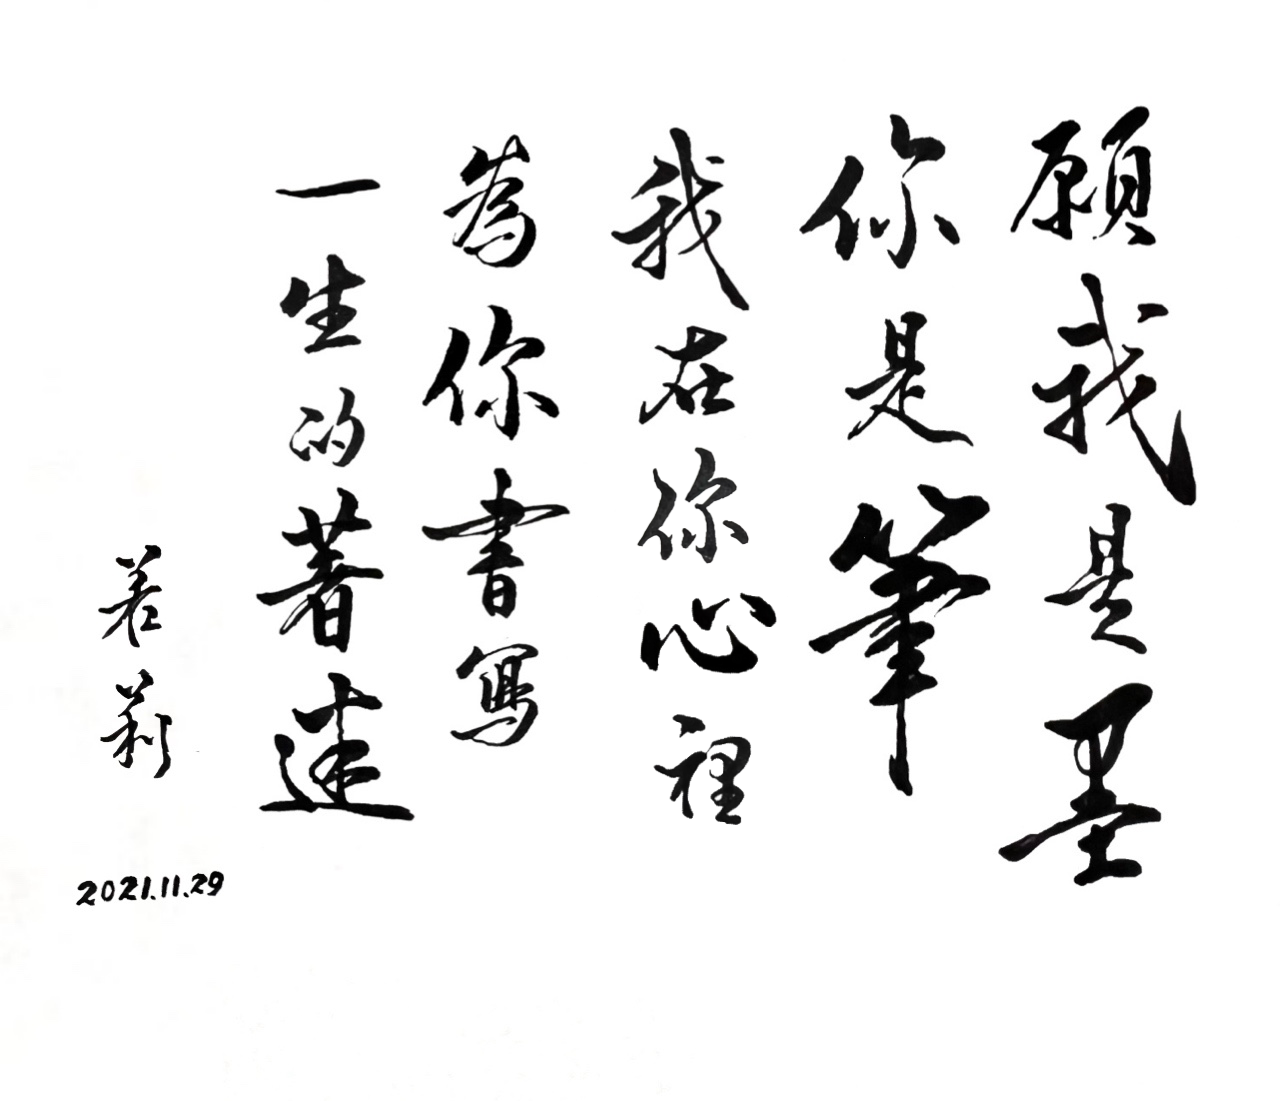 願我是墨
你是筆
我在你心裡
為你書寫
一生的著述
若莉
2021.11.29